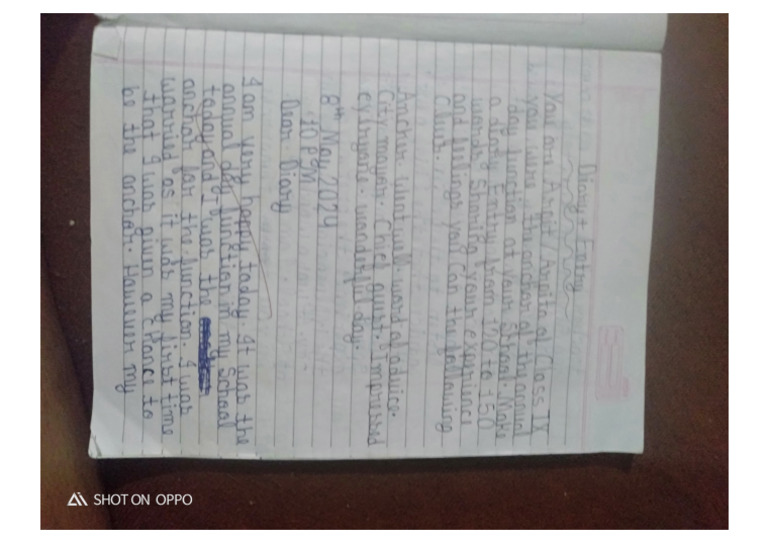 Diary Entry
You are Arpit / Arpita of Class IX
you were the anchor of the annual
day function at your School. Make
a diary Entry from 120 to 150
words Sharing your experience
and feelings you can the following
Clue.
Anchor went well. word of advice.
City mayor. Chief guest. Impressed
everyone. wonderful day.
8th May, 2024
10 PM
Dear Diary
I am very happy today. It was the
annual day function in my school
today and I was the
anchor for the function. I was
worried as it was my first time
that I was given a chance to
be the anchor. However my
SHOT ON OPPO